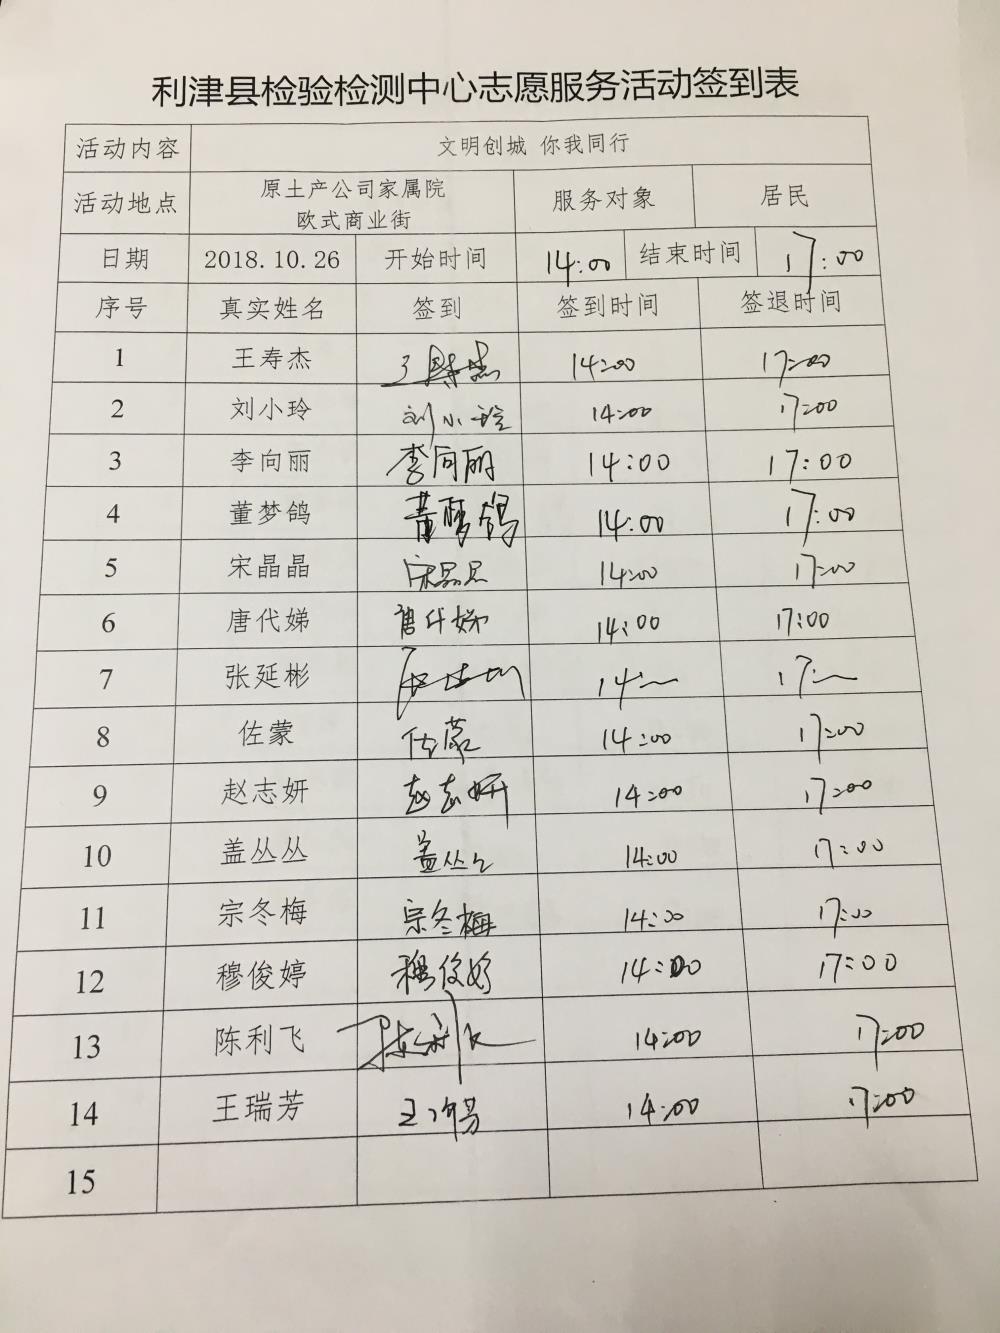 利津县检验检测中心志愿服务活动签到表
活动内容 文明创城 你我同行
活动地点 原土产公司家属院 欧式商业街 服务对象 居民
日期 2018.10.26 开始时间 14:00 结束时间 17:00
序号 真实姓名 签到 签到时间 签退时间
1 王寿杰 王寿杰 14:00 17:00
2 刘小玲 刘小玲 14:00 17:00
3 李向丽 李向丽 14:00 17:00
4 董梦鸽 董梦鸽 14:00 17:00
5 宋晶晶 宋晶晶 14:00 17:00
6 唐代娣 唐代娣 14:00 17:00
7 张延彬 14: 17:
8 佐蒙 佐蒙 14:00 17:00
9 赵志妍 赵志妍 14:00 17:00
10 盖丛丛 盖丛丛 14:00 17:00
11 宗冬梅 宗冬梅 14:00 17:00
12 穆俊婷 穆俊婷 14:00 17:00
13 陈利飞 陈利飞 14:00 17:00
14 王瑞芳 王瑞芳 14:00 17:00
15